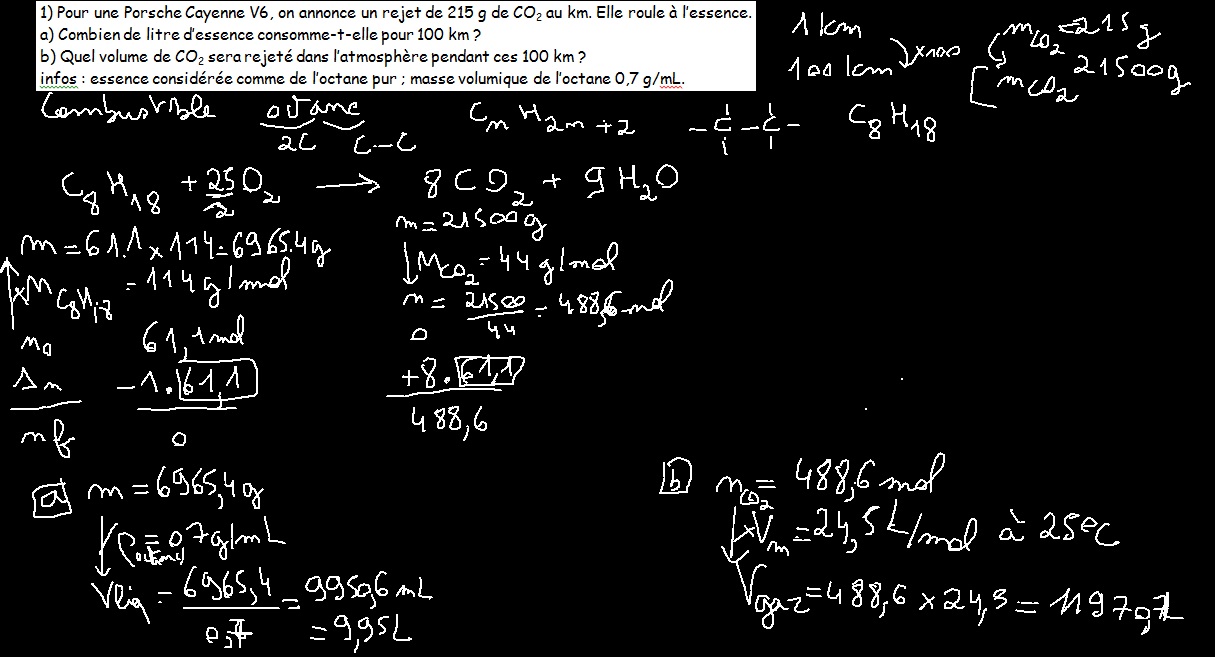 1) Pour une Porsche Cayenne V6, on annonce un rejet de 215 g de CO₂ au km. Elle roule à l'essence.
a) Combien de litre d'essence consomme-t-elle pour 100 km ?
b) Quel volume de CO₂ sera rejeté dans l'atmosphère pendant ces 100 km ?
infos : essence considérée comme de l'octane pur ; masse volumique de l'octane 0,7 g/mL.
1 km mCO₂ = 215 g
×100
100 km mCO₂ 21500 g
Combustible octane CnH2n+2 -C-C- C₈H₁₈
2C C-C
C₈H₁₈ + 25/2 O₂ → 8 CO₂ + 9 H₂O
m = 61.1 × 114 = 6965.4 g
×M C₈H₁₈ = 114 g/mol
n₀ 61,1 mol
Δn -1.61,1
nf 0
m = 21500 g
MCO₂ = 44 g/mol
n = 21500/44 = 488,6 mol
0
+8.61,1
488,6
a) m = 6965,4 g
ρoctane = 0,7 g/mL
Vliq = 6965,4/0,7 = 9950,6 mL
= 9,95 L
b) nCO₂ = 488,6 mol
×Vm = 24,5 L/mol à 25°C
Vgaz = 488,6 × 24,5 = 11970,7 L